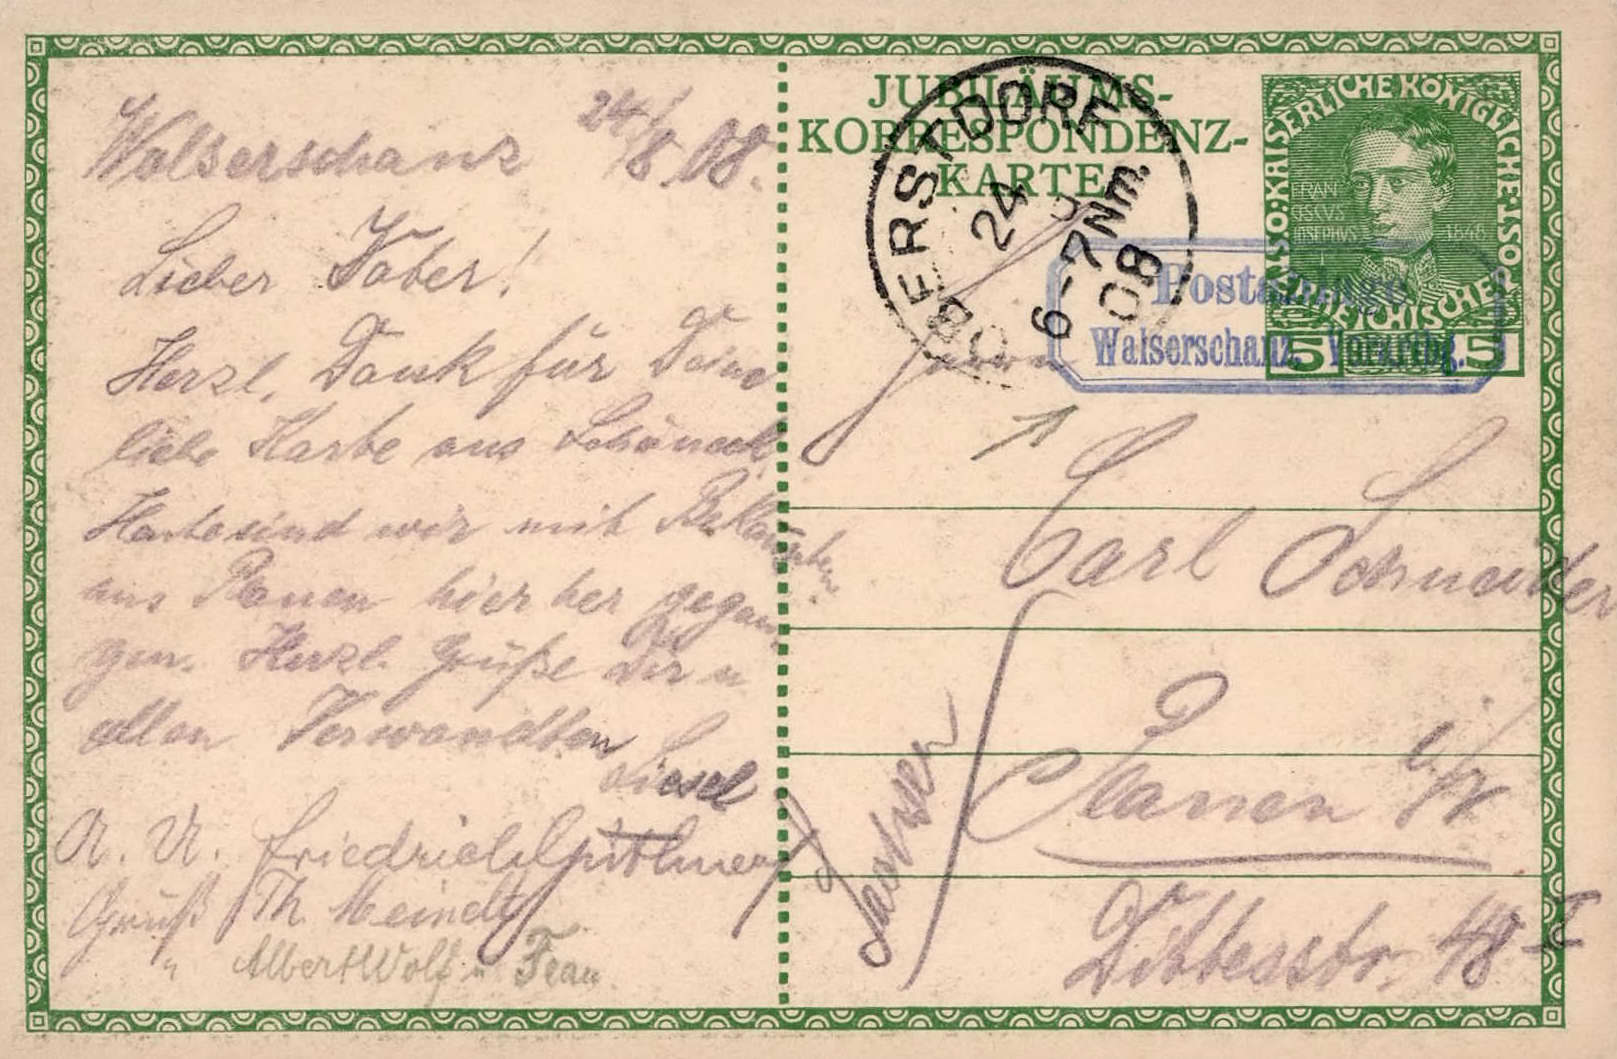 Walserschanz 24/8.08.
Lieber Vater!
Herzl. Dank für Deine
liebe Karte aus Schöneck.
Heute sind wir mit Bekannten
aus Plauen hier her gegan-
gen. Herzl. Grüße Dir u
allen Verwandten
Liesel
A. U. Friedrich
Gruß Th. Meindl
" Albert Wolf u Frau.
JUBILÄUMS-
KORRESPONDENZ-
KARTE
OBERSTDORF
24
6-7Nm.
08
KAISERLICHE KÖNIGLICHE
ÖSTERREICHISCHE
FRAN
CISCVS
IOSEPHVS 1848
5 5
Postablage
Walserschanz, Vorarlbg.
Herrn
1
Carl Schneider
Plauen i/V
Sachsen
Dittesstr. 48 I